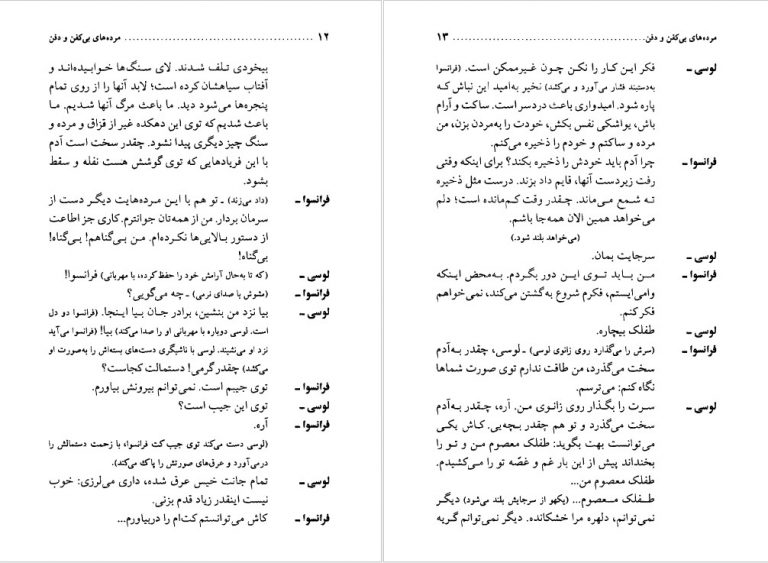 ۱۲ ........ مرده‌های بی‌کفن و دفن
بیخودی تلف شدند. لای سنگ‌ها خوابیده‌اند و
آفتاب سیاهشان کرده است؛ لابد آنها را از روی تمام
پنجره‌ها می‌شود دید. ما باعث مرگ آنها شدیم. ما
باعث شدیم که توی این دهکده غیر از قزاق و مرده و
سنگ چیز دیگری پیدا نشود. چقدر سخت است آدم
با این فریادهایی که توی گوشش هست نفله و سقط
بشود.
فرانسوا ـ (داد می‌زند) ـ تو هم با این مرده‌هایت دیگر دست از
سرمان بردار. من از همه‌تان جوانترم. کاری جز اطاعت
از دستور بالایی‌ها نکرده‌ام. من بی‌گناهم! بی‌گناه!
بی‌گناه!
لوسی ـ (که تا به‌حال آرامش خود را حفظ کرده، با مهربانی) فرانسوا!
فرانسوا ـ (مشوش با صدای نرمی) ـ چه می‌گویی؟
لوسی ـ بیا نزد من بنشین، برادر جان بیا اینجا. (فرانسوا دو دل
است. لوسی دوباره با مهربانی او را صدا می‌کند) بیا! (فرانسوا می‌آید
نزد او می‌نشیند. لوسی با ناشیگری دست‌های بسته‌اش را به‌صورت او
می‌کشد) چقدر گرمی! دستمالت کجاست؟
فرانسوا ـ توی جیبم است. نمی‌توانم بیرونش بیاورم.
لوسی ـ توی این جیب است؟
فرانسوا ـ آره.
(لوسی دست می‌کند توی جیب کت فرانسوا، با زحمت دستمالش را
درمی‌آورد و عرق‌های صورتش را پاک می‌کند).
لوسی ـ تمام جانت خیس عرق شده، داری می‌لرزی: خوب
نیست اینقدر زیاد قدم بزنی.
فرانسوا ـ کاش می‌توانستم کت‌ام را دربیاورم...
مرده‌های بی‌کفن و دفن ........ ۱۳
لوسی ـ فکر این کار را نکن چون غیرممکن است. (فرانسوا
به‌دستبند فشار می‌آورد و می‌کشد) نخیر به‌امید این نباش که
پاره شود. امیدواری باعث دردسر است. ساکت و آرام
باش، یواشکی نفس بکش، خودت را به‌مردن بزن، من
مرده و ساکتم و خودم را ذخیره می‌کنم.
فرانسوا ـ چرا آدم باید خودش را ذخیره بکند؟ برای اینکه وقتی
رفت زیردست آنها، قایم داد بزند. درست مثل ذخیره
ته شمع می‌ماند. چقدر وقت کم‌مانده است؛ دلم
می‌خواهد همین الان همه‌جا باشم.
(می‌خواهد بلند شود.)
لوسی ـ سرجایت بمان.
فرانسوا ـ من باید توی این دور بگردم. به‌محض اینکه
وامی‌ایستم، فکرم شروع به‌گشتن می‌کند، نمی‌خواهم
فکر کنم.
لوسی ـ طفلک بیچاره.
فرانسوا ـ (سرش را می‌گذارد روی زانوی لوسی) ـ لوسی، چقدر به‌آدم
سخت می‌گذرد، من طاقت ندارم توی صورت شماها
نگاه کنم: می‌ترسم.
لوسی ـ سرت را بگذار روی زانوی من. آره، چقدر به‌آدم
سخت می‌گذرد و تو هم چقدر بچه‌یی. کاش یکی
می‌توانست بهت بگوید: طفلک معصوم من و تو را
بخنداند پیش از این بار غم و غصّه تو را می‌کشیدم.
طفلک معصوم من...
طفلک معصوم... (یکهو از سرجایش بلند می‌شود) دیگر
نمی‌توانم، دلهره مرا خشکانده. دیگر نمی‌توانم گریه